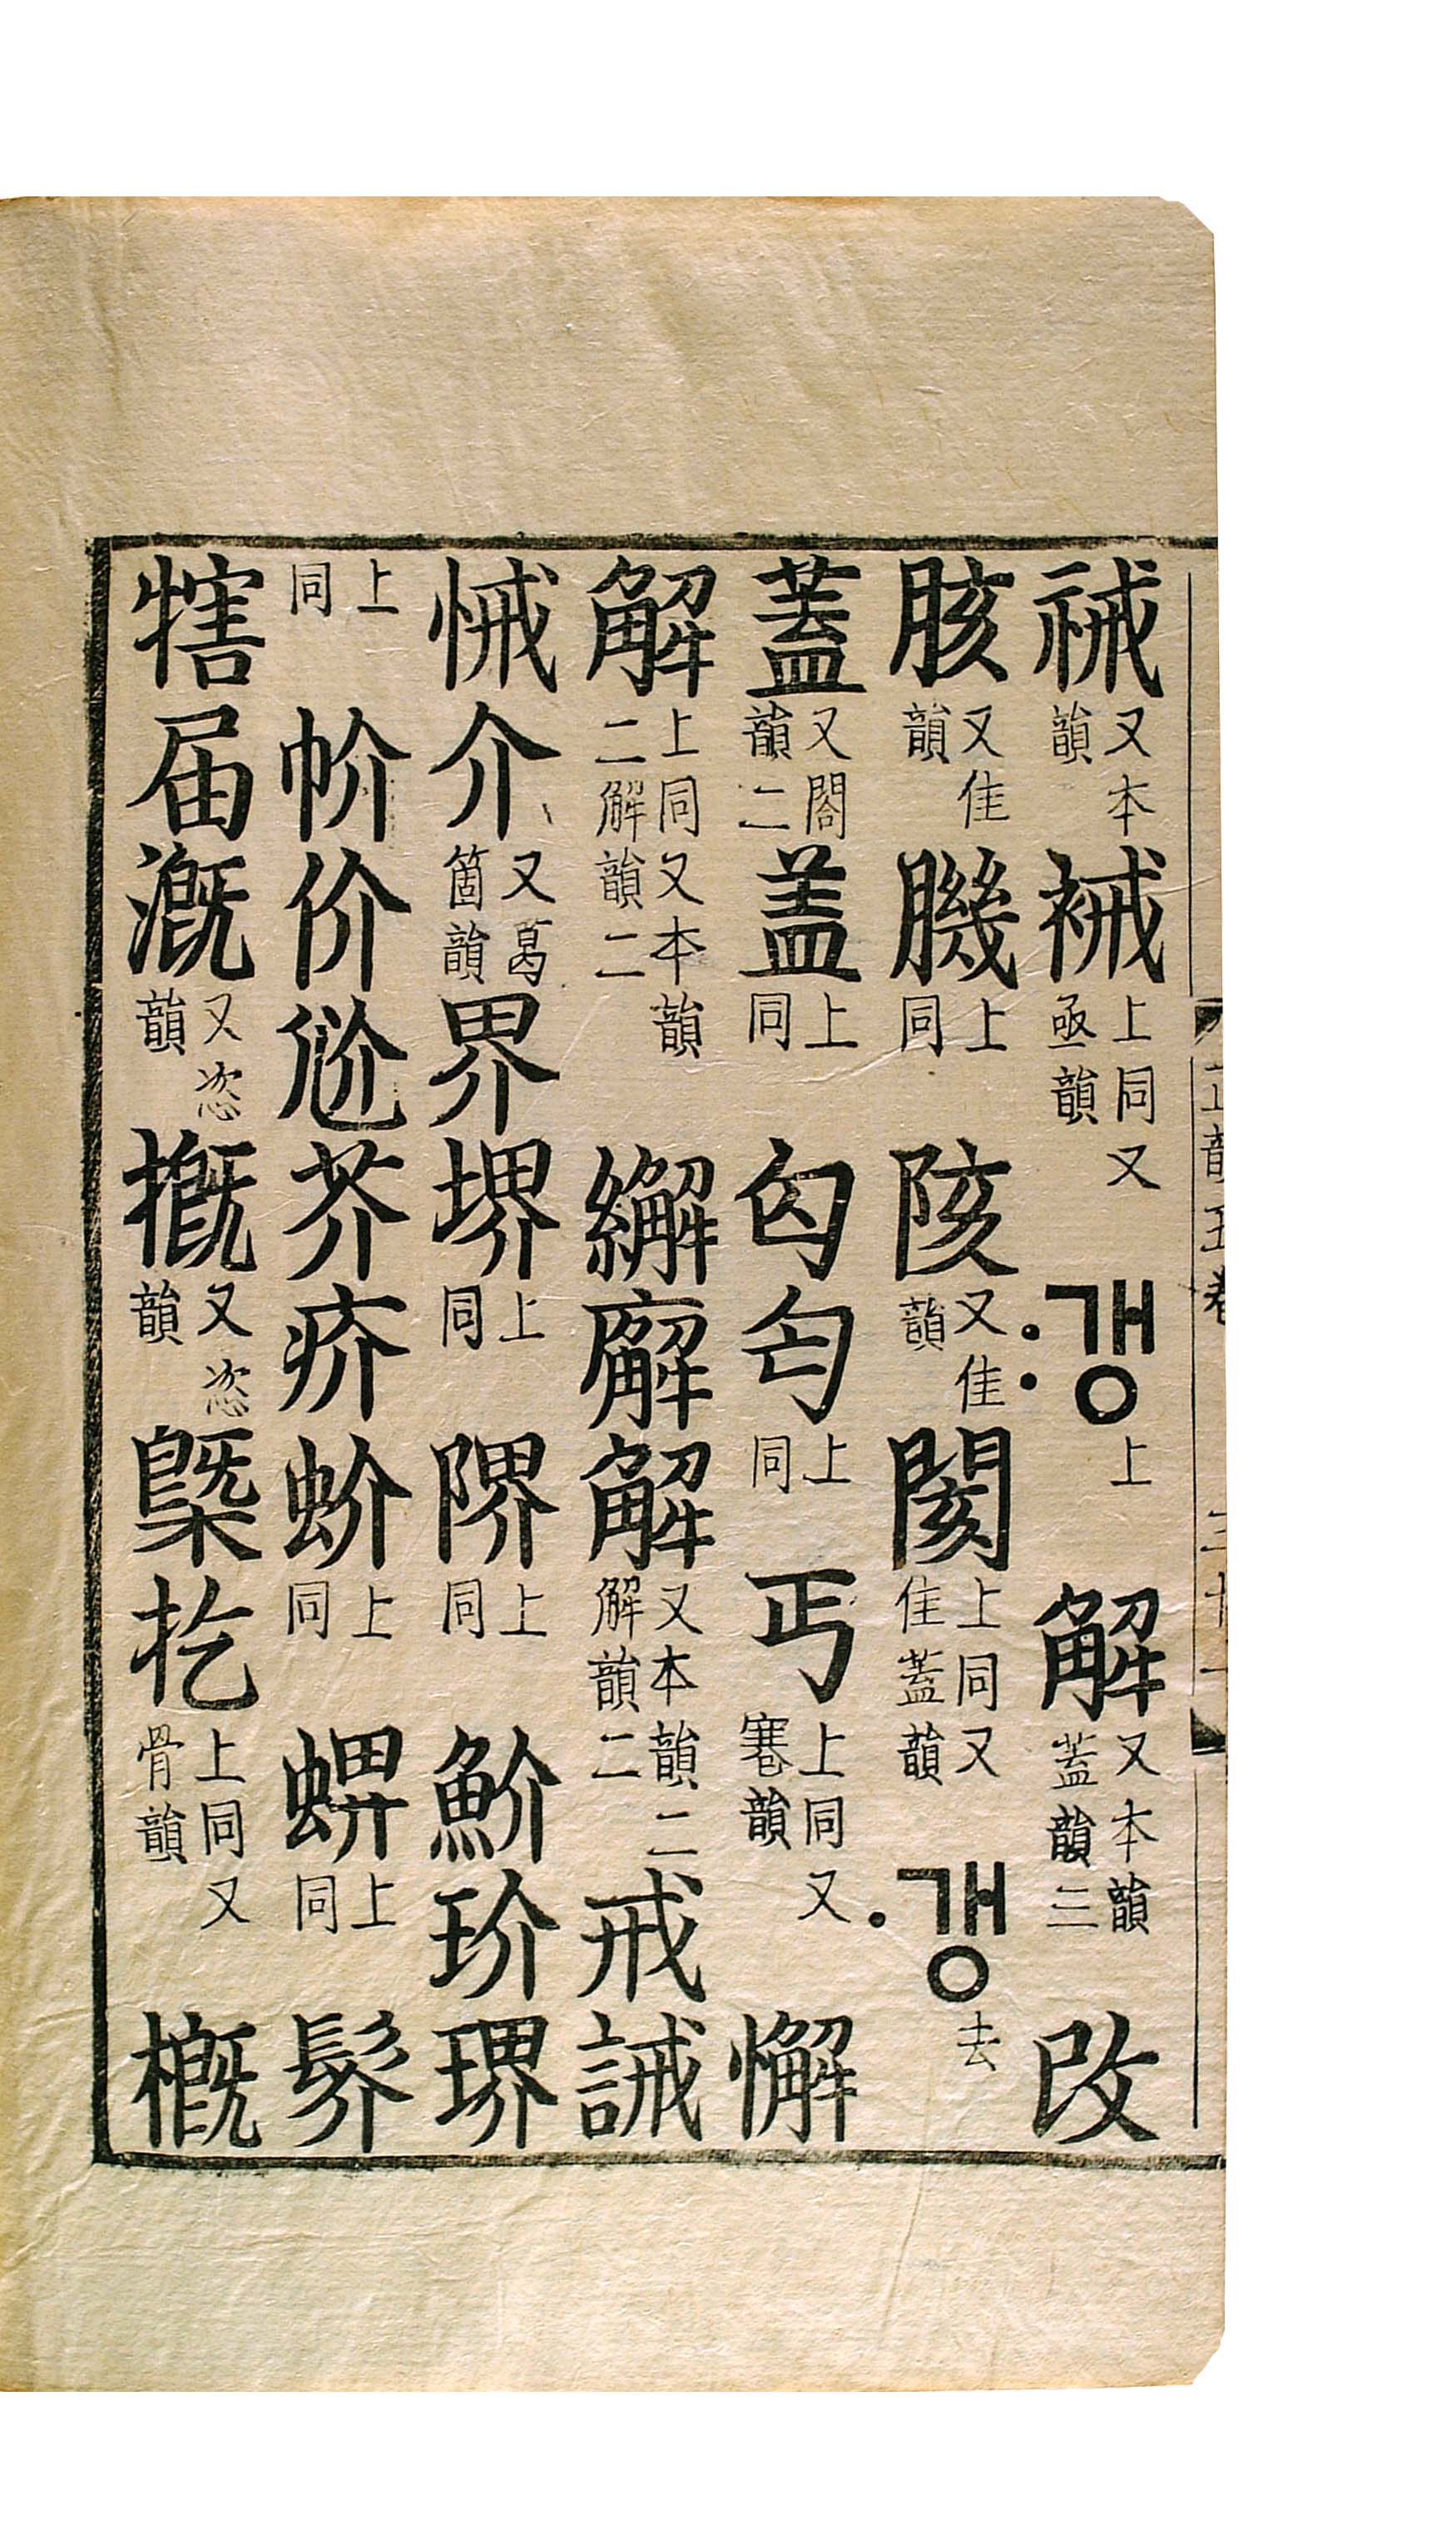 祴又本韻裓上同又亟韻:갱上解又本韻蓋韻三改
胲又佳韻上同陔又佳韻閡上同又佳蓋韻·갱去
蓋又閤韻二盖上同匃匄上同丐上同又韻懈
解上同又本韻二解韻二繲廨解又本韻二解韻二戒誡
悈介又葛箇韻界堺上同上同魪玠琾
上同价尬芥疥蚧上同上同䯰
犗届漑又恣韻摡又恣韻槩扢上同又骨韻概